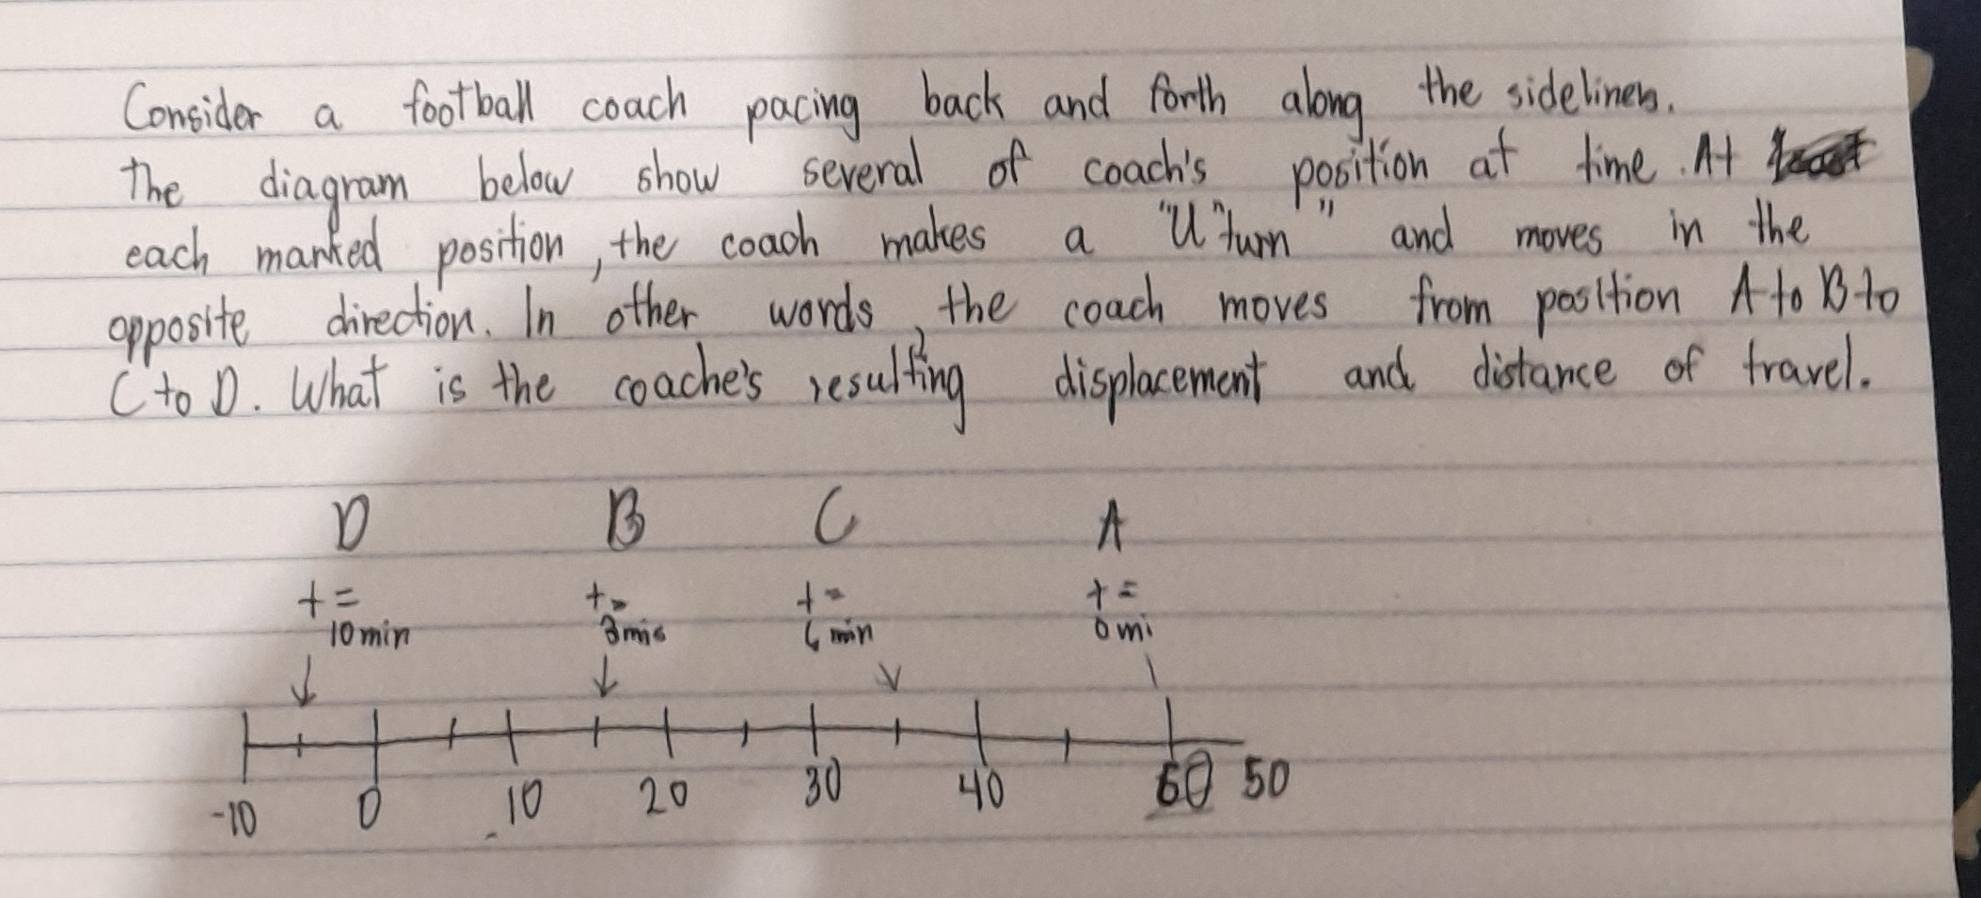 Consider a football coach pacing back and forth along the sidelines.
The diagram below show several of coach's position at time. At
each marked position, the coach makes a "U"turn" and moves in the
opposite direction. In other words, the coach moves from position A to B to
C to D. What is the coache's resulting displacement and distance of travel.
D B C A
t= t= t= t=
10min 3min 6 min 0 mi
-10 0 10 20 30 40 50 50